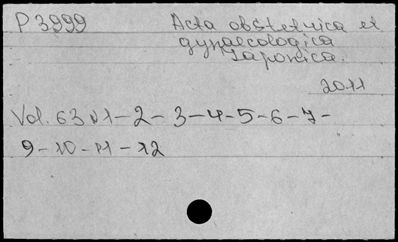 P 3999 Acta obstetrica et
gynaecologica
Japonica.
2011
Vol. 63 N1-2-3-4-5-6-7-
9-10-11-12